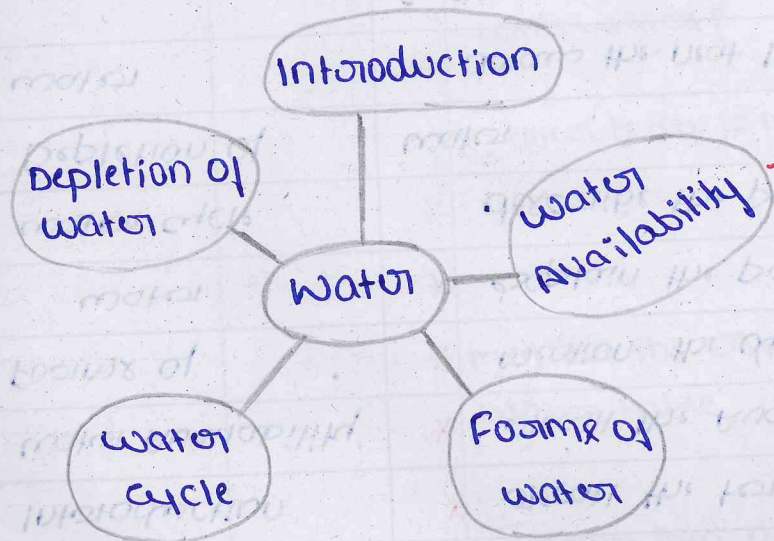 Introduction
Depletion of
water
water
Availability
Water
water
cycle
Forms of
water